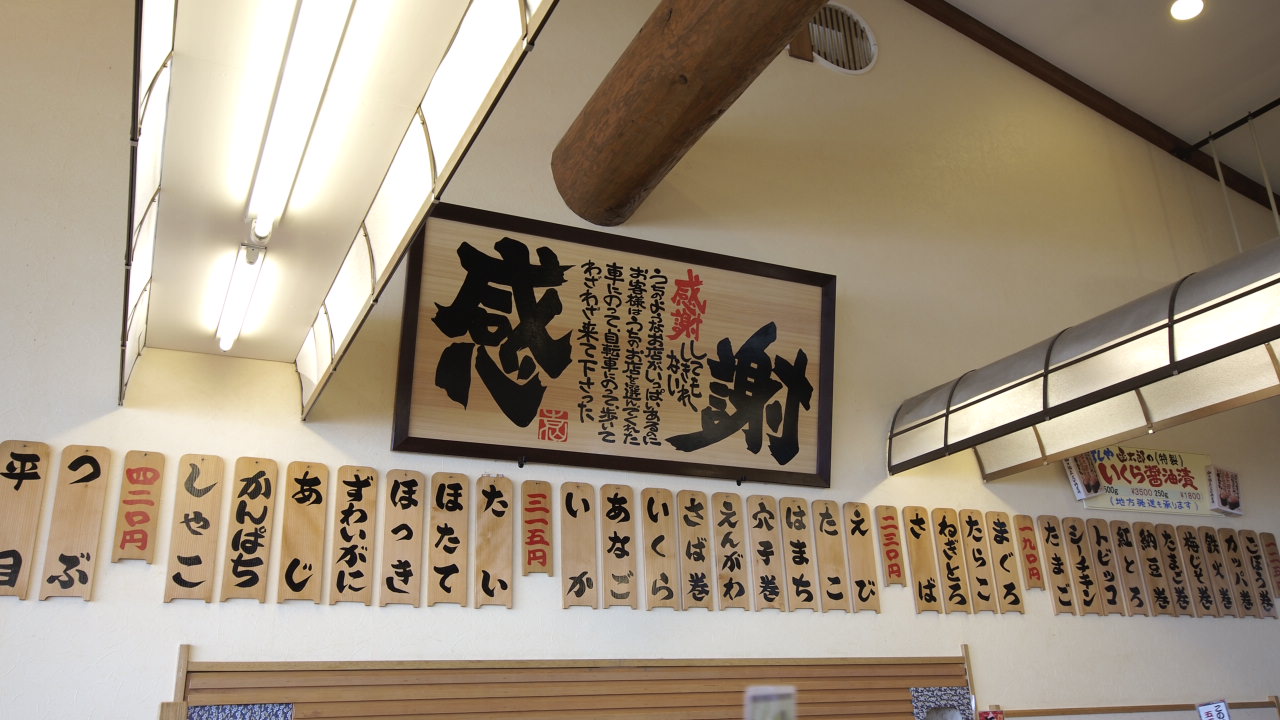 感謝
感謝
してもしきれ
ない
うちのようなお店がいっぱいあるに
お客様はうちのお店を選んでくれた
車にのって自転車にのって歩いて
わざわざ来て下さった
いくら醤油漬
(特製)
500g ¥3500 250g ¥1800
(地方発送も承ります)
ごぼう巻
カッパ巻
鉄火巻
梅しそ巻
たまご巻
納豆巻
紅とろ
トビッコ
シーチキン
たまご
一九〇円
まぐろ
たらこ
ねぎとろ
さば
二三〇円
えび
たこ
はまち
穴子巻
えんがわ
さば巻
いくら
あなご
いか
三一五円
たい
ほたて
ほっき
ずわいがに
あじ
かんぱち
しゃこ
四二〇円
つぶ
平目